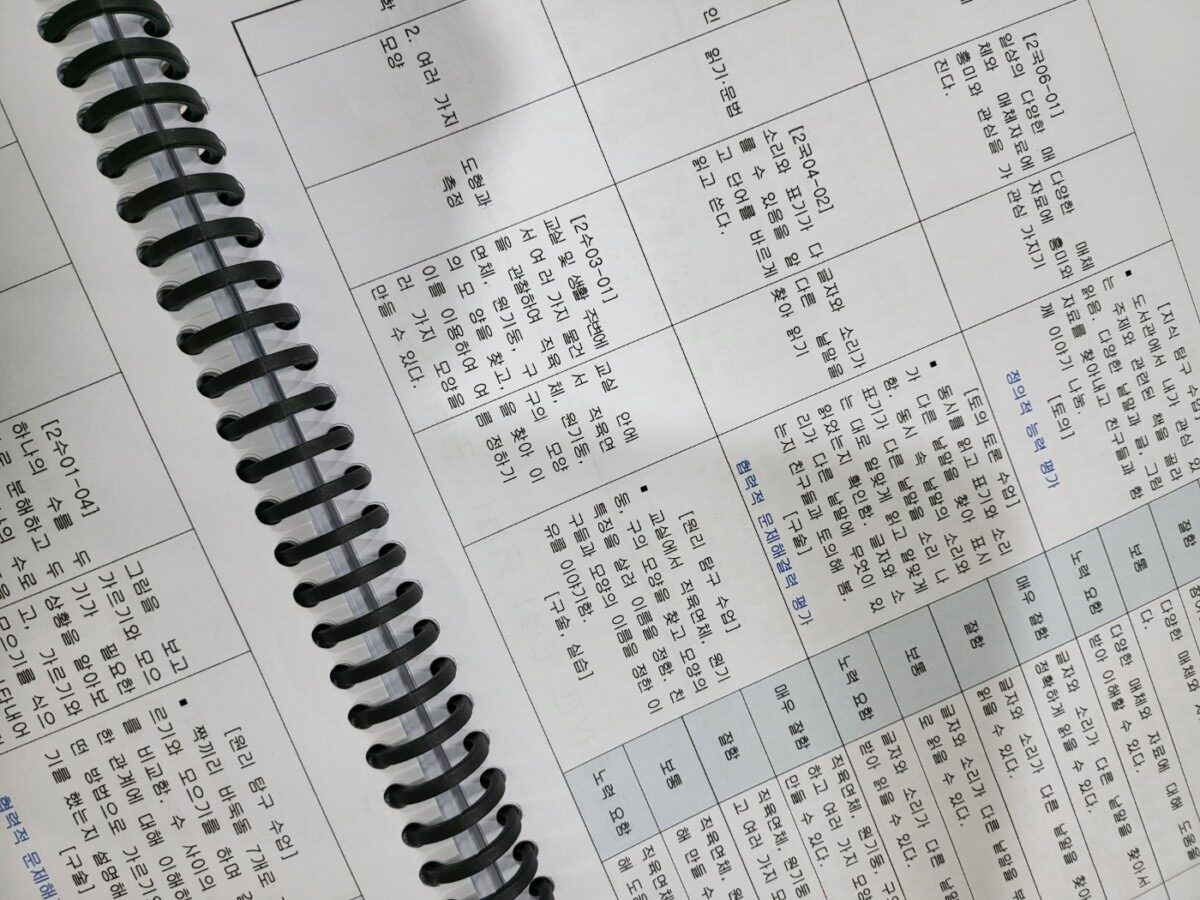 [2국06-01]
일상의 다양한 매
체와 매체자료에
흥미와 관심을 가
진다.
다양한 매체
자료에 흥미와
관심 가지기
[지식 탐구 수
도서관에서 내가 관심 있
는 주제와 관련된 책을 골라
읽음. 다양한 낱말과 글, 그림
자료를 찾아내고 친구들과 함
께 이야기 나눔.
[토의]
정의적 능력 평가
잘함
보통
다양한 매체와
다.
노력 요함
다양한 매체와 자료에 대해 도움을
받아 이해할 수 있다.
인
읽기·문법
[2국04-02]
소리와 표기가 다
를 수 있음을 알
고 단어를 바르게
읽고 쓴다.
글자와 소리가
다른 낱말을
찾아 읽기
[토의 토론 수업]
▪ 동시를 읽고 표기와 소리
가 다른 낱말을 찾아 표시
함. 동시 속 낱말의 소리와
표기가 다른 낱말을 소리 나
는 대로 알맞게 읽고 알맞게
읽었는지 확인함. 글자와 소
리가 다른 낱말에 무엇이 있
는지 친구들과 토의해 봄.
[구술]
협력적 문제해결력 평가
매우 잘함
글자와 소리가 다른 낱말을 찾아서
정확하게 읽을 수 있다.
잘함
글자와 소리가 다른 낱말을 찾아
읽을 수 있다.
보통
글자와 소리가 다른 낱말을 부
로 읽을 수 있다.
노력 요함
글자와 소리가 다른 낱말
받아 읽을 수 있다.
학
2. 여러 가지
모양
도형과
측정
[2수03-01]
교실 및 생활 주변에
서 여러 가지 물건
을 관찰하여 직육
면체, 원기둥, 구
의 모양을 찾고
이를 이용하여 여
러 가지 모양을
만들 수 있다.
교실 안에
서 직육면
체, 원기둥,
구의 모양
을 찾아 이
름 정하기
[원리 탐구 수업]
▪ 교실에서 직육면체, 원기
둥, 구의 모양을 찾고 모양의
특징을 살려 이름을 정함. 친
구들과 모양의 이름을 정한 이
유를 이야기함.
[구술, 실습]
매우 잘함
직육면체, 원기둥, 구
하고 여러 가지 모양
만들 수 있다.
잘함
직육면체, 원기둥
고 여러 가지 모
보통
직육면체, 원
해 만들 수
노력 요함
직육면체
해 도움
[2수01-04]
하나의 수를 두
로 분해하고 두
그림을 보고
가르기와 모으
기가 필요한
상황을 알아보
고 가르기와
모으기를 식으
[원리 탐구 수업]
▪ 짝끼리 바둑돌 7개로
르기와 모으기를 하며
를 비교함. 수 사이의
한 관계에 대해 이해하
떤 방법으로 가르기
기를 했는지 설명해
[구술]
협력적 문제해